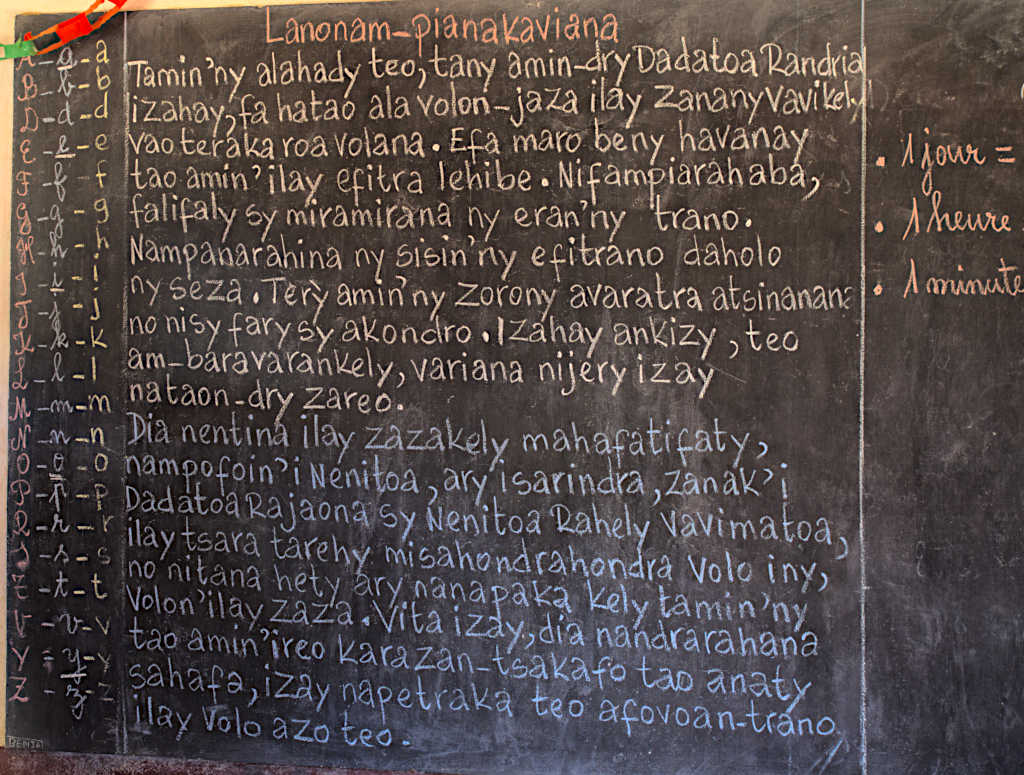 Lanonam-pianakaviana
Tamin'ny alahady teo, tany amin-dry Dadatoa Randria
izahay, fa hatao ala volon-jaza ilay zananyvavikely
vao teraka roa volana. Efa maro beny havanay
tao amin'ilay efitra lehibe. Nifampiarahaba,
falifaly sy miramirana ny eran'ny trano.
Nampanarahina ny sisin'ny efitrano daholo
ny seza. Tery amin'ny zorony avaratra atsinanana
no nisy fary sy akondro. Izahay ankizy, teo
am-baravarankely, variana nijery izay
nataon-dry zareo.
Dia nentina ilay zazakely mahafatifaty,
nampofoin'i Nenitoa, ary isarindra, zanak'i
Dadatoa Rajaona sy Nenitoa Rahely vavimatoa,
ilay tsara tarehy misahondrahondra volo iny,
no nitana hety ary nanapaka kely tamin'ny
volon'ilay zaza. Vita izay, dia nandrarahana
tao amin'ireo karazan-tsakafo tao anaty
sahafa, izay napetraka teo afovoan-trano
ilay volo azo teo.
A - a - a
B - b - b
D - d - d
E - e - e
F - f - f
G - g - g
H - h - h
I - i - i
J - j - j
K - k - k
L - l - l
M - m - m
N - n - n
O - o - o
P - p - p
R - r - r
S - s - s
T - t - t
V - v - v
Y - y - y
Z - z - z
BENJA
. 1 jour =
. 1 heure
. 1 minute